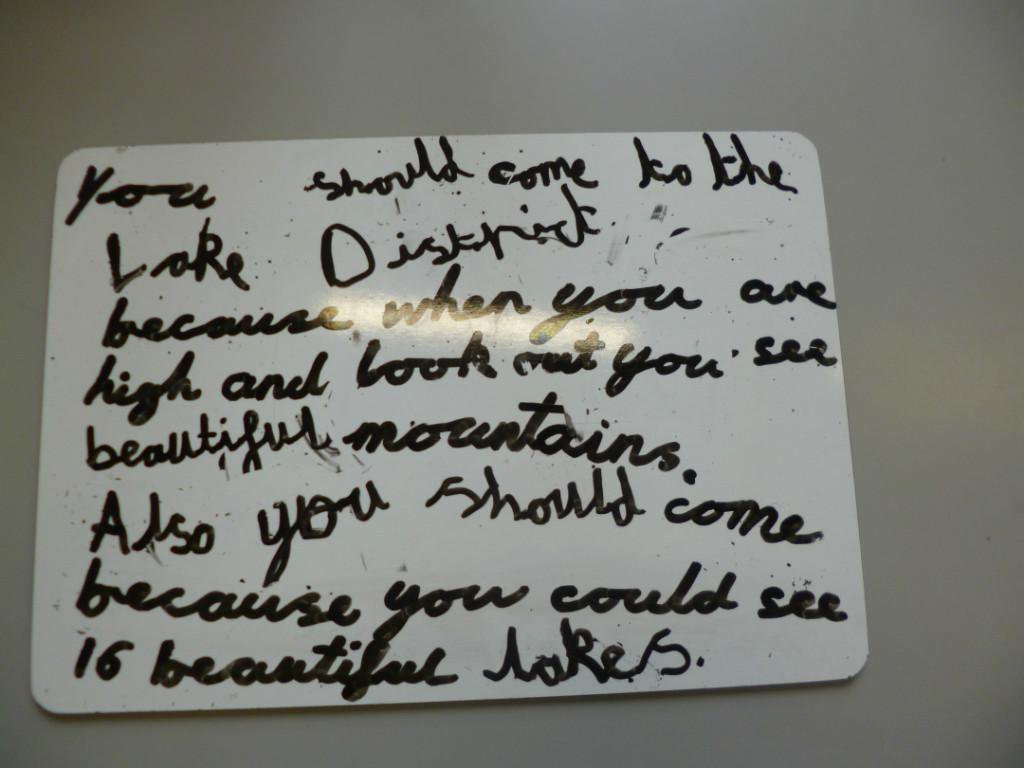 You should come to the
Lake District
because when you are
high and look out you see
beautiful mountains.
Also you should come
because you could see
16 beautiful lakes.